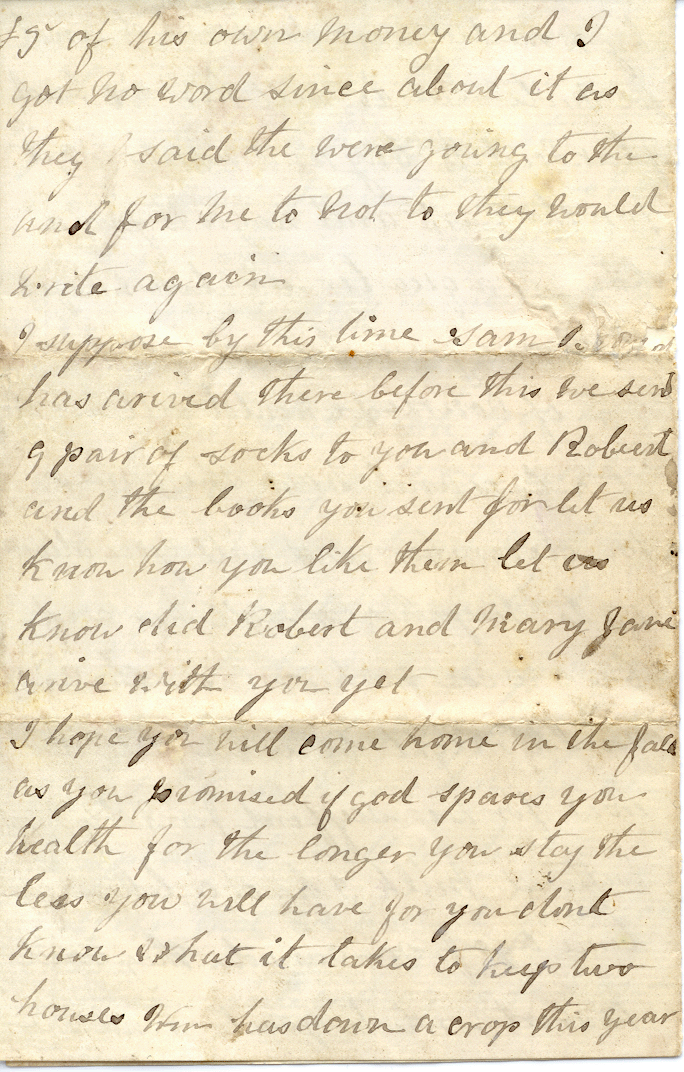 £5 of his own money and I
got no word since about it as
they said the were going to the
and for me to not to they would
write again
I suppose by this time sam
has arived there before this we sent
9 pair of socks to you and Robert
and the books you sent for let us
know how you like them let us
know did Robert and Mary Jane
arive with you yet
I hope you will come home in the fall
as you promised if god spares you
health for the longer you stay the
less you will have for you dont
know what it takes to keep two
houses Wm has down a crop this year